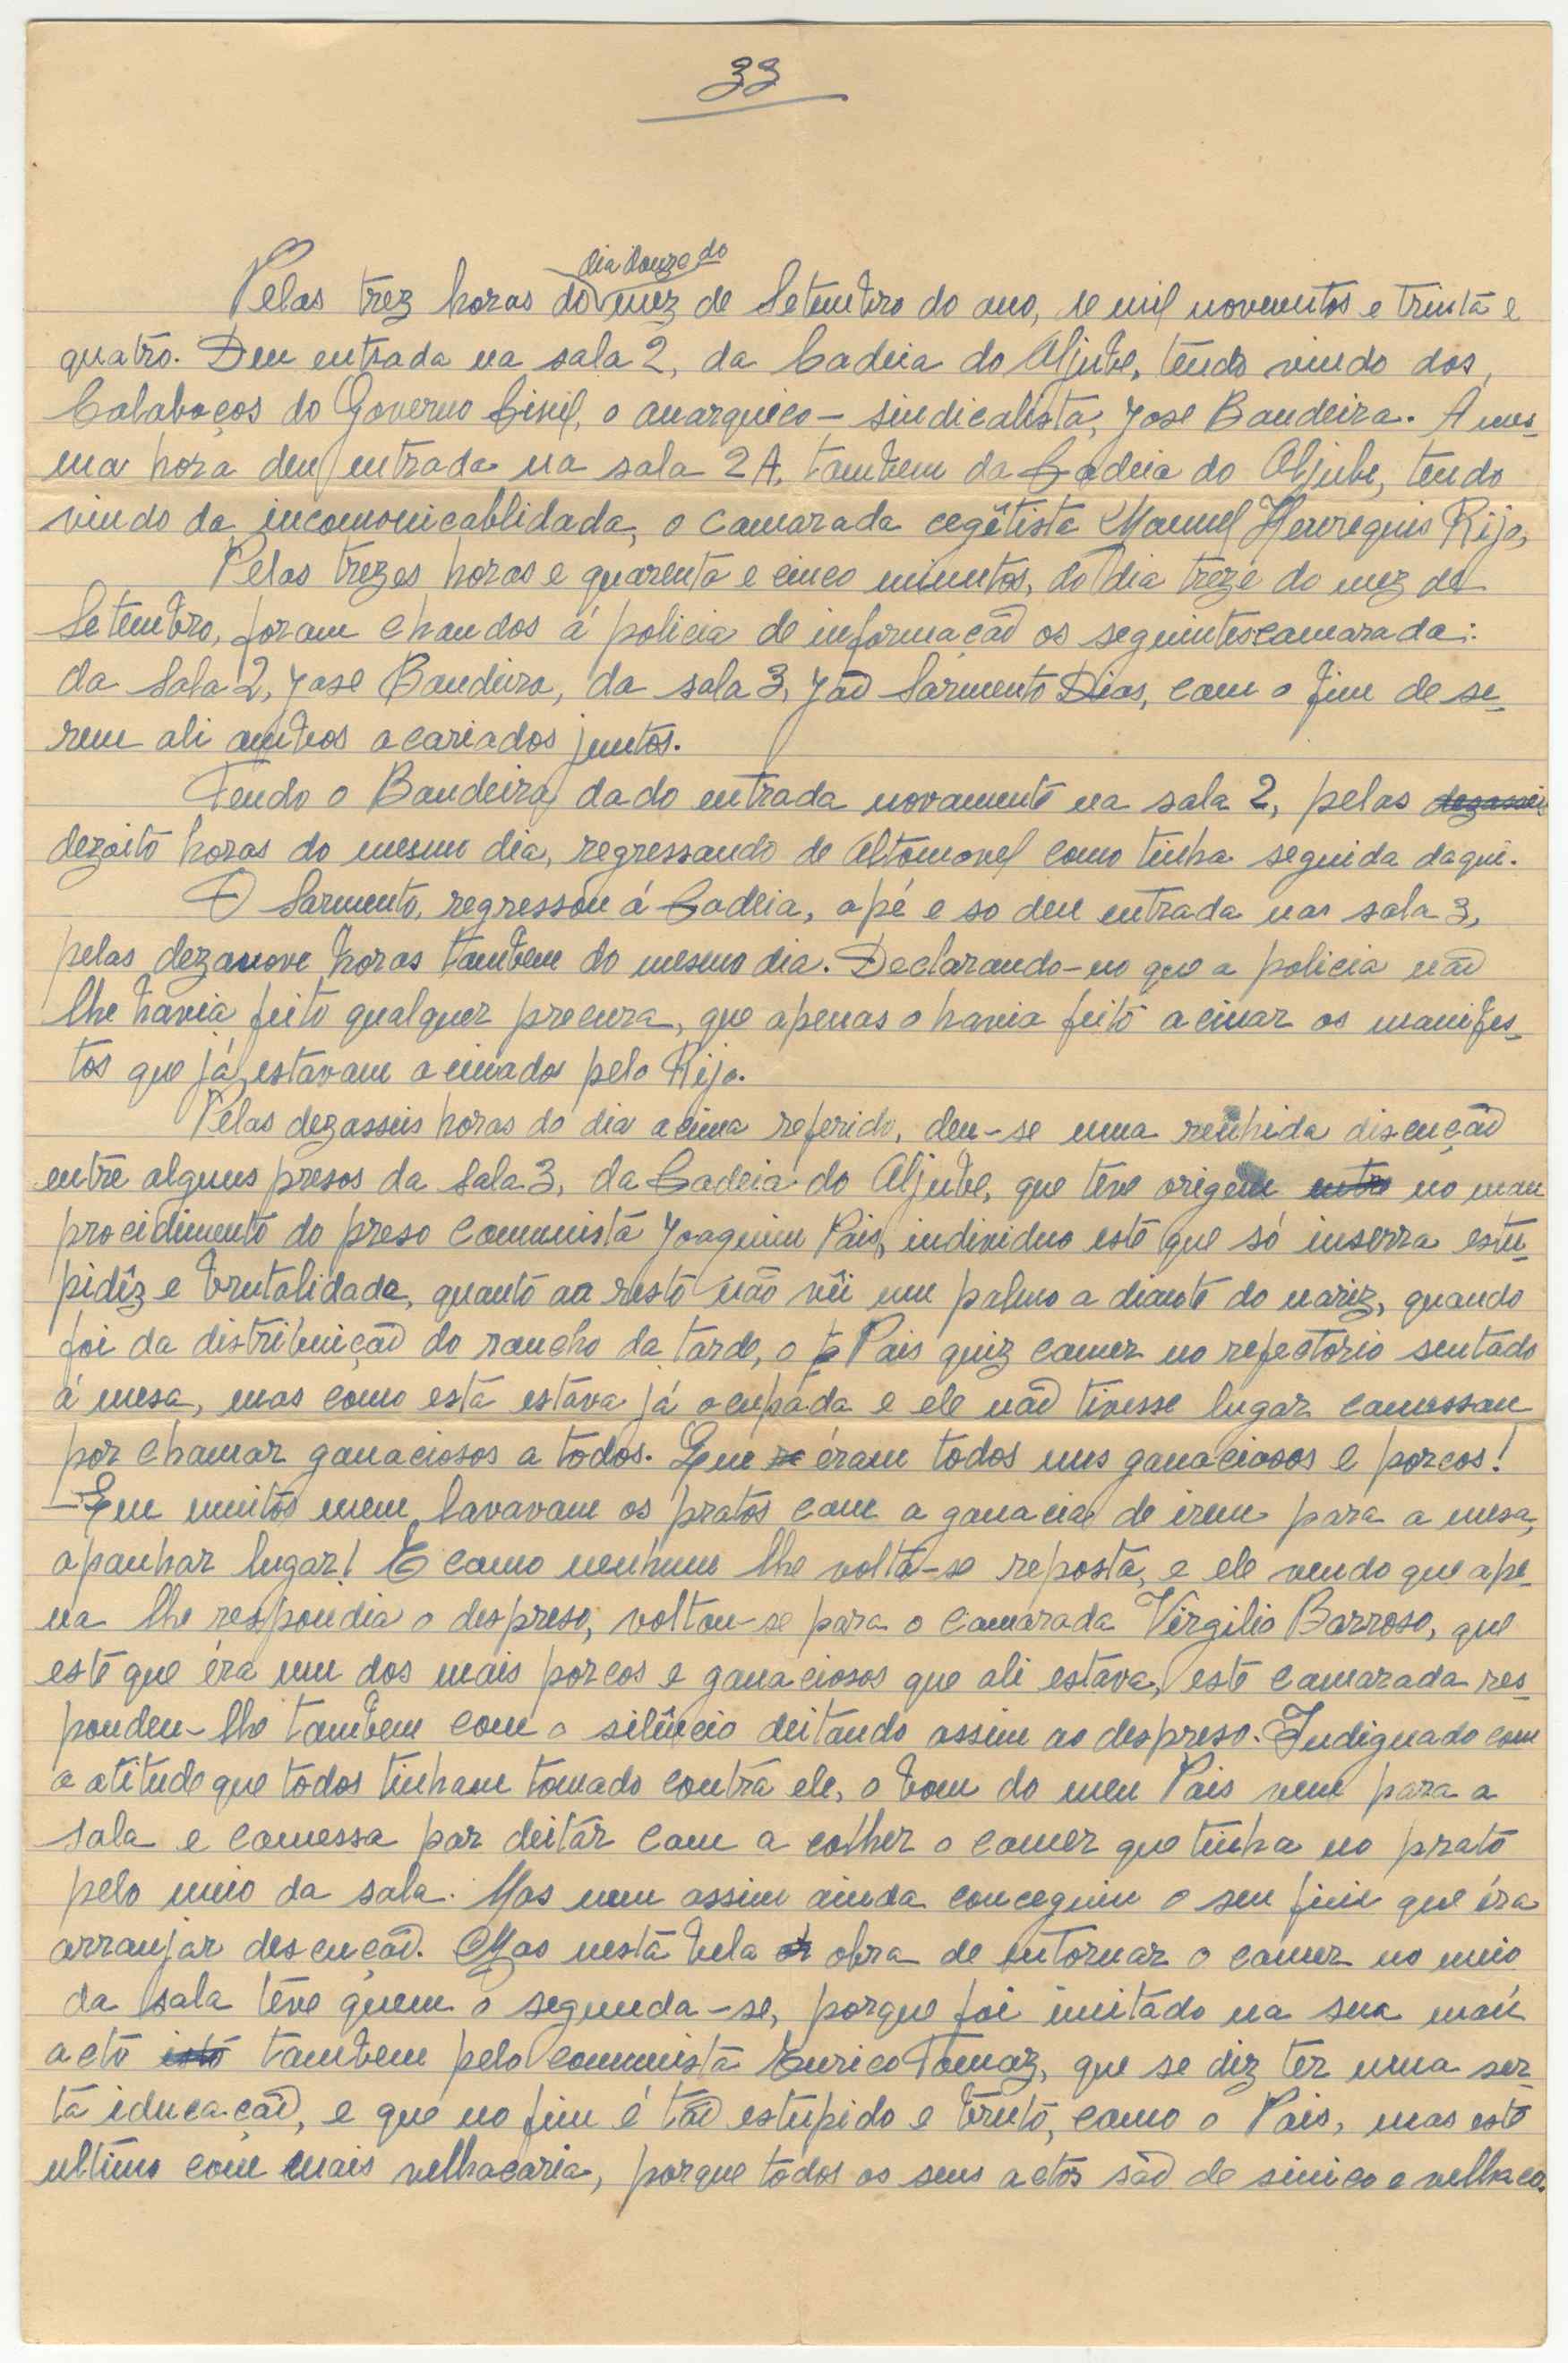 33
dia douze do
Pelas trez horas do mez de Setembro do ano, de mil novecentos e trinta e
quatro. Deu entrada na sala 2, da Cadeia do Aljube, tendo vindo dos,
Calaboços do Governo Civil, o anarquico-sindicalista, Jose Bandeira. A mes-
ma hora deu entrada na sala 2A, tambem da Cadeia do Aljube, tendo
vindo da incomonicablidada, o camarada cegêtista Manuel Henrequis Rijo,
Pelas trezes horas e quarenta e cinco minutos, do dia treze do mez de
Setembro, foram chandos á policia de informação os seguintes camarada:
da Sala 2, Jose Bandeira, da sala 3, Jão Sarmento Dias, com o fim de se-
rem ali ambos acariados juntos.
Tendo o Bandeira dado entrada novamente na sala 2, pelas dezasseis
dezoito horas do mesmo dia, regressando de Altomovel como tinha seguida daqui.
O Sarmento, regressou á Cadeia, apé e so deu entrada nas sala 3,
pelas dezanove horas tambem do mesmo dia. Declarando-no que a policia não
lhe havia feito qualquer precura, que apenas o havia feito acinar os manifes-
tos que já estavam acinados pelo Rijo.
Pelas dezasseis horas do dia acima referido, deu-se uma renhida discução
entre alguns presos da Sala 3, da Cadeia do Aljube, que teve origem no mau
procidimento do preso comunista Joaquim Pais, individuo este que só inserra estu-
pidêz e brutalidade, quanto ao resto não vêi um palmo a diante do nariz, quando
foi da distribuição do rancho da tarde, o Pais quiz comer no refectorio sentado
á mesa, mas como esta estava já ocupáda e ele não tivesse lugar comessou
por chamar ganaciosos a todos. Que éram todos uns ganaciosos e porcos!
- Que muitos nem lavavam os pratos com a ganacia de irem para a mesa,
apanhar lugar! E como nenhum lhe volta-se reposta, e ele vendo que ape-
na lhe respondia o despreso, voltou-se para o camarada Virgilio Barroso, que
este que éra um dos mais porcos e ganaciosos que ali estava, este camarada res-
pondeu-lhe tambem com o silêncio deitando assim ao despreso. Indignado com
a atitude que todos tinham tomado contra ele, o bom do meu Pais vem para a
sala e comessa por deitár com a colher o comer que tinha no prato
pelo meio da sala. Mas nem assim ainda conceguiu o seu fim que éra
arranjar descução. Mas nesta bela obra de entornar o comer no meio
da sala têve quem o segunda-se, porque foi imitado na sua maú
acto isto tambem pelo comunista Eurico Tomaz, que se diz ter uma ser-
ta iducação, e que no fim é tão estupido e bruto, como o Pais, mas este
ultimo com mais velhacaria, porque todos os seus actos são de sinico e velhaco.